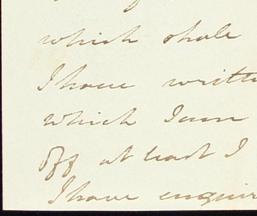 which shale
I have writte
which I am
off at least I
I have enquir